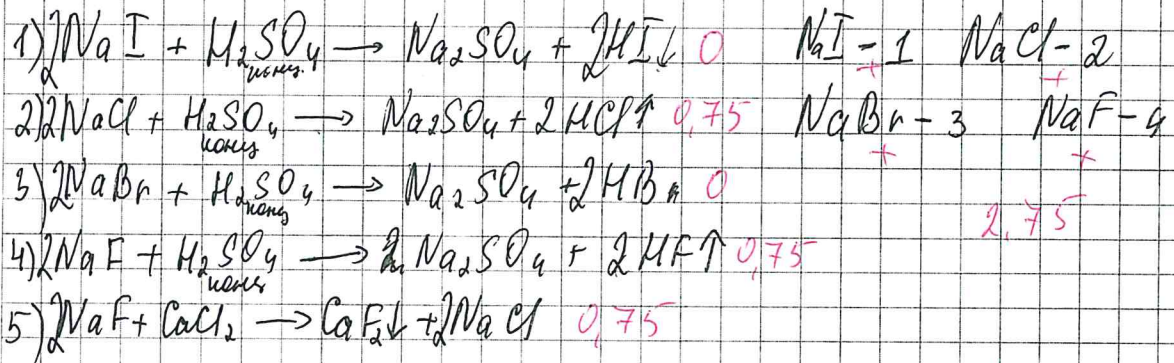 1) 2NaI + H₂SO₄ конц. → Na₂SO₄ + 2HI↓ 0 NaI - 1 NaCl - 2
+ +
2) 2NaCl + H₂SO₄ конц → Na₂SO₄ + 2HCl↑ 0,75 NaBr - 3 NaF - 4
+ +
3) 2NaBr + H₂SO₄ конц → Na₂SO₄ + 2HBr 0
2,75
4) 2NaF + H₂SO₄ конц → Na₂SO₄ + 2HF↑ 0,75
5) 2NaF + CaCl₂ → CaF₂↓ + 2NaCl 0,75